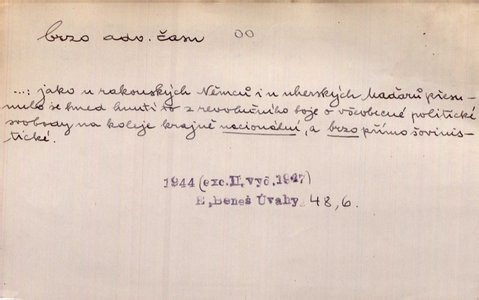 brzo adv. času oo
...: jako u rakouských Němců i u uherských Maďarů přesu-
nulo se hned hnutí to z revolučního boje o všeobecné politické
svobody na koleje krajně nacionální, a brzo přímo šovinis-
tické.
1944 (exc. II. vyd. 1947)
E. Beneš Úvahy 48, 6.